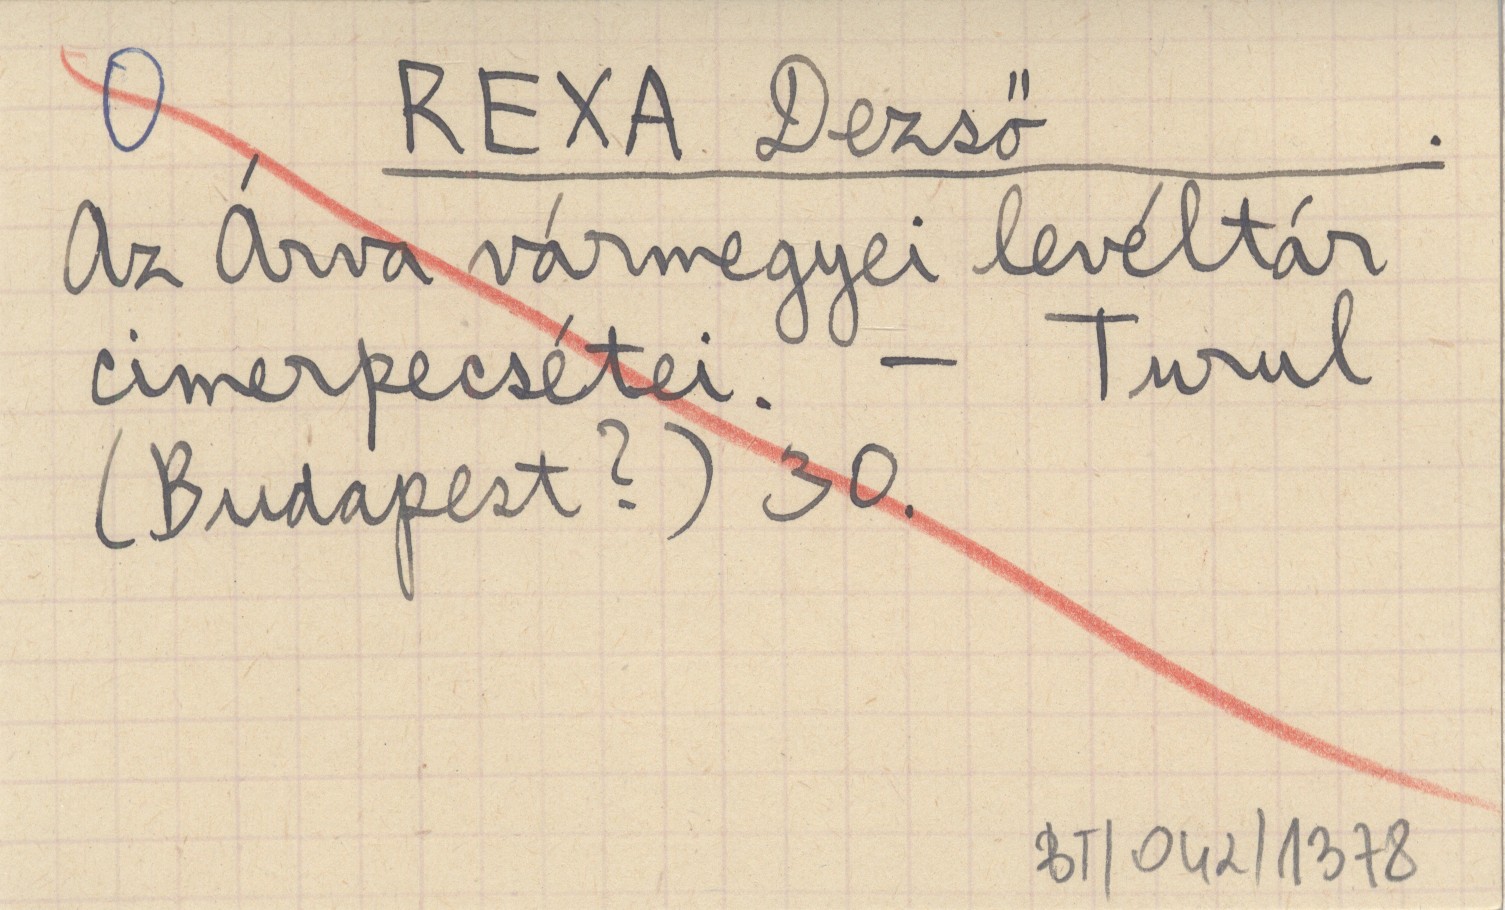 O REXA Dezső .
Az Árva vármegyei levéltár
cimerpecsétei. — Turul
(Budapest?) 30.
BT/042/1378